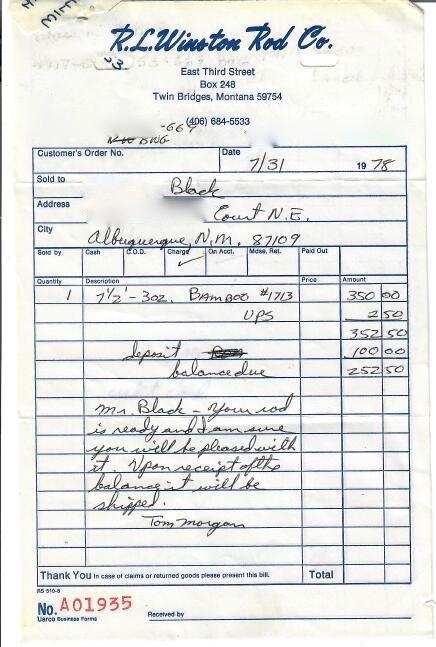 R.L. Winston Rod Co.
East Third Street
Box 248
Twin Bridges, Montana 59754
(406) 684-5533
-667
BWG
Customer's Order No.
Date 7/31 1978
Sold to Black
Address Court N.E.
City Albuquerque, N.M. 87109
Sold by Cash C.O.D. Charge ✓ On Acct. Mdse. Ret. Paid Out
Quantity Description Price Amount
1 7 1/2' - 3 oz. Bamboo #1713 350 00
UPS 2 50
352 50
deposit 100 00
balance due 252 50
Mr. Black - Your rod
is ready and I am sure
you will be pleased with
it. Upon receipt of the
balance it will be
shipped.
Tom Morgan
Thank You In case of claims or returned goods please present this bill. Total
RS 510-8
No. A01935
Uarco Business Forms
Received by